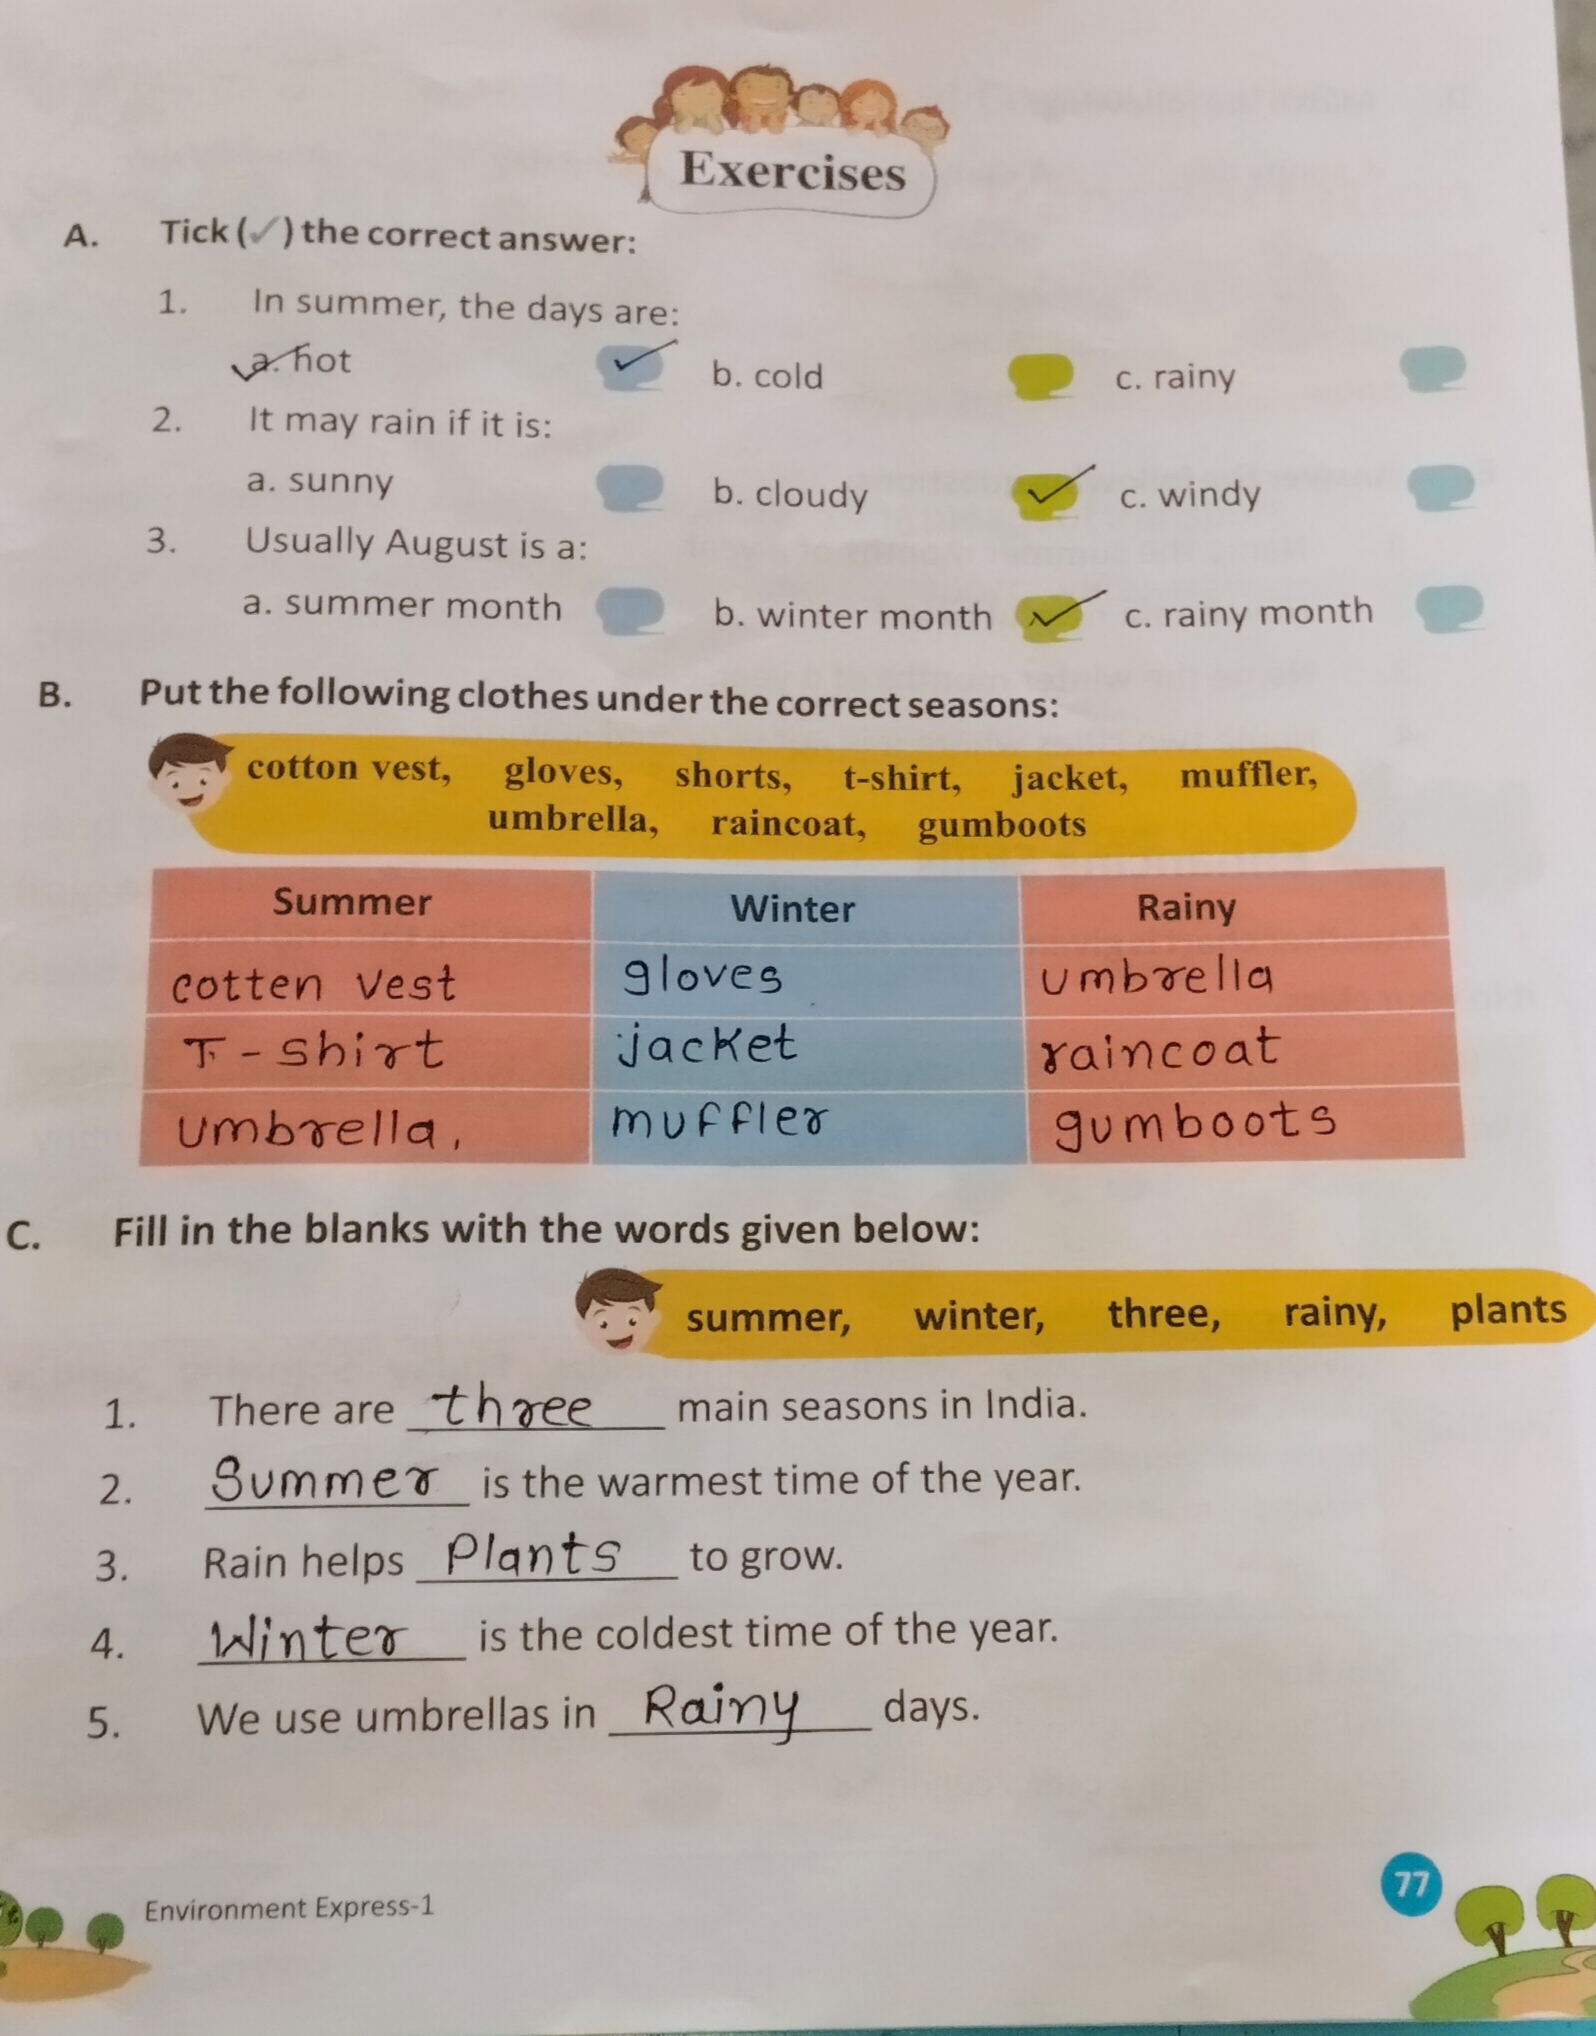 Exercises
A. Tick (✓) the correct answer:
1. In summer, the days are:
a. hot ✓ b. cold c. rainy
2. It may rain if it is:
a. sunny b. cloudy ✓ c. windy
3. Usually August is a:
a. summer month b. winter month ✓ c. rainy month
B. Put the following clothes under the correct seasons:
cotton vest, gloves, shorts, t-shirt, jacket, muffler,
umbrella, raincoat, gumboots
Summer Winter Rainy
cotten vest gloves umbrella
T-shirt jacket raincoat
umbrella, muffler gumboots
C. Fill in the blanks with the words given below:
summer, winter, three, rainy, plants
1. There are three main seasons in India.
2. Summer is the warmest time of the year.
3. Rain helps Plants to grow.
4. Winter is the coldest time of the year.
5. We use umbrellas in Rainy days.
Environment Express-1
77